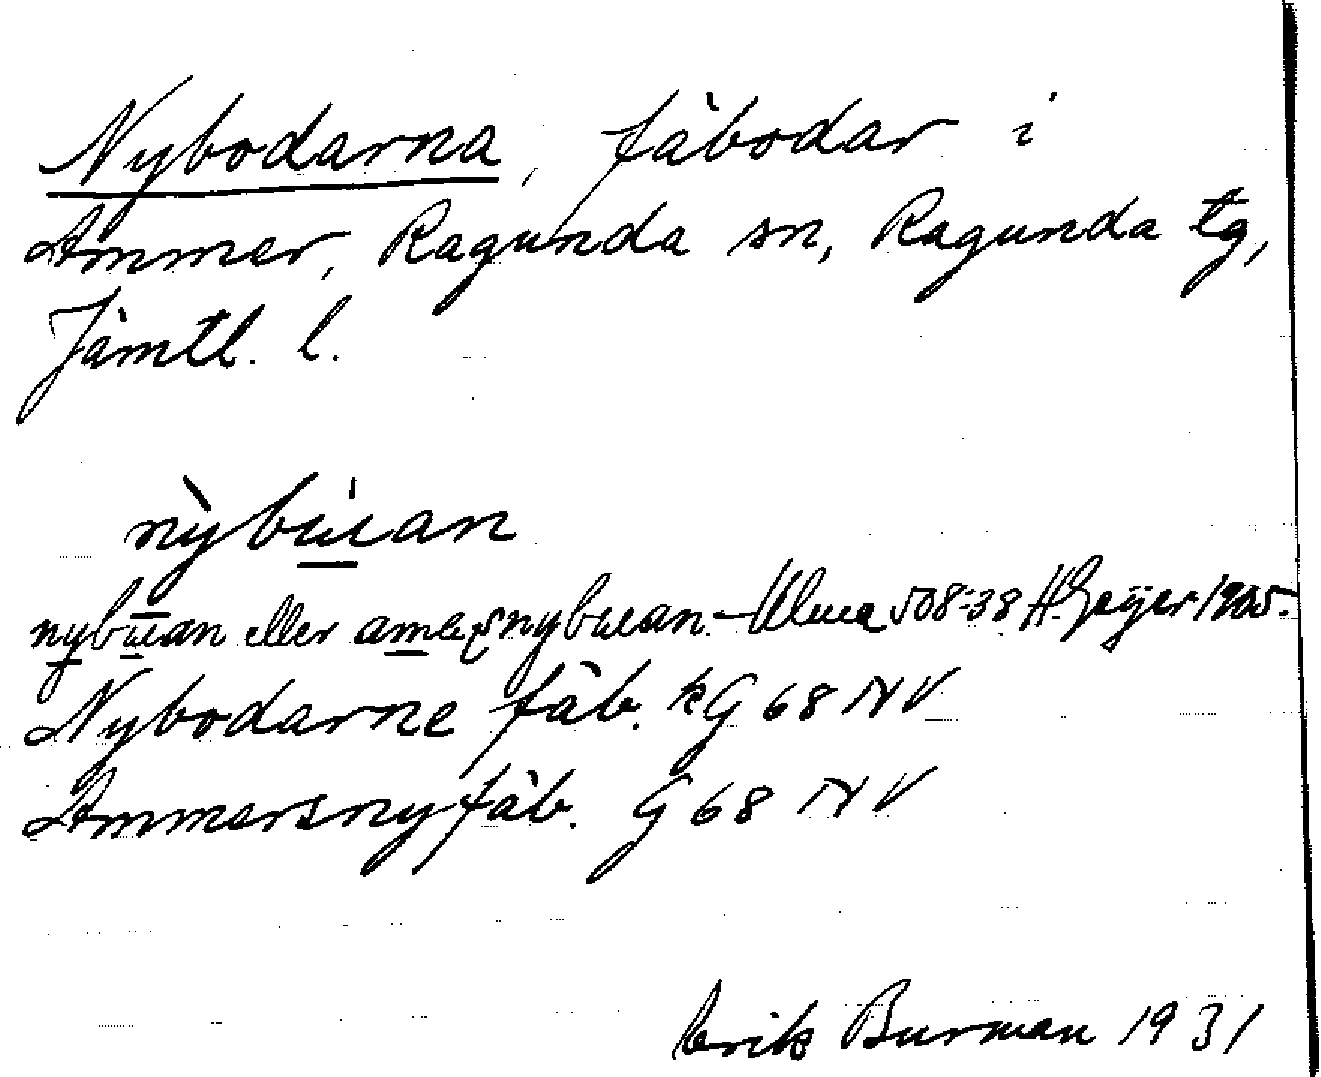 Nybodarna, fäbodar i
Ammer, Ragunda sn, Ragunda tg,
Jämtl. l.
nỳbu̠̇an
nybuan eller nybuan. – Ulma 508:38 H. Geijer 1905.
Nybodarne fäb. kG 68 NV
Ammersnyfäb. G 68 NV
Erik Burman 1931